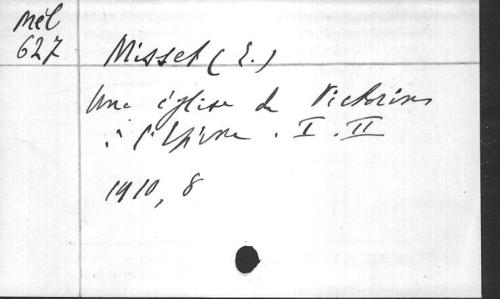 Mél
627
Misset (E.)
Une église de Victorins
à l'Épine. I. II
1910, 8